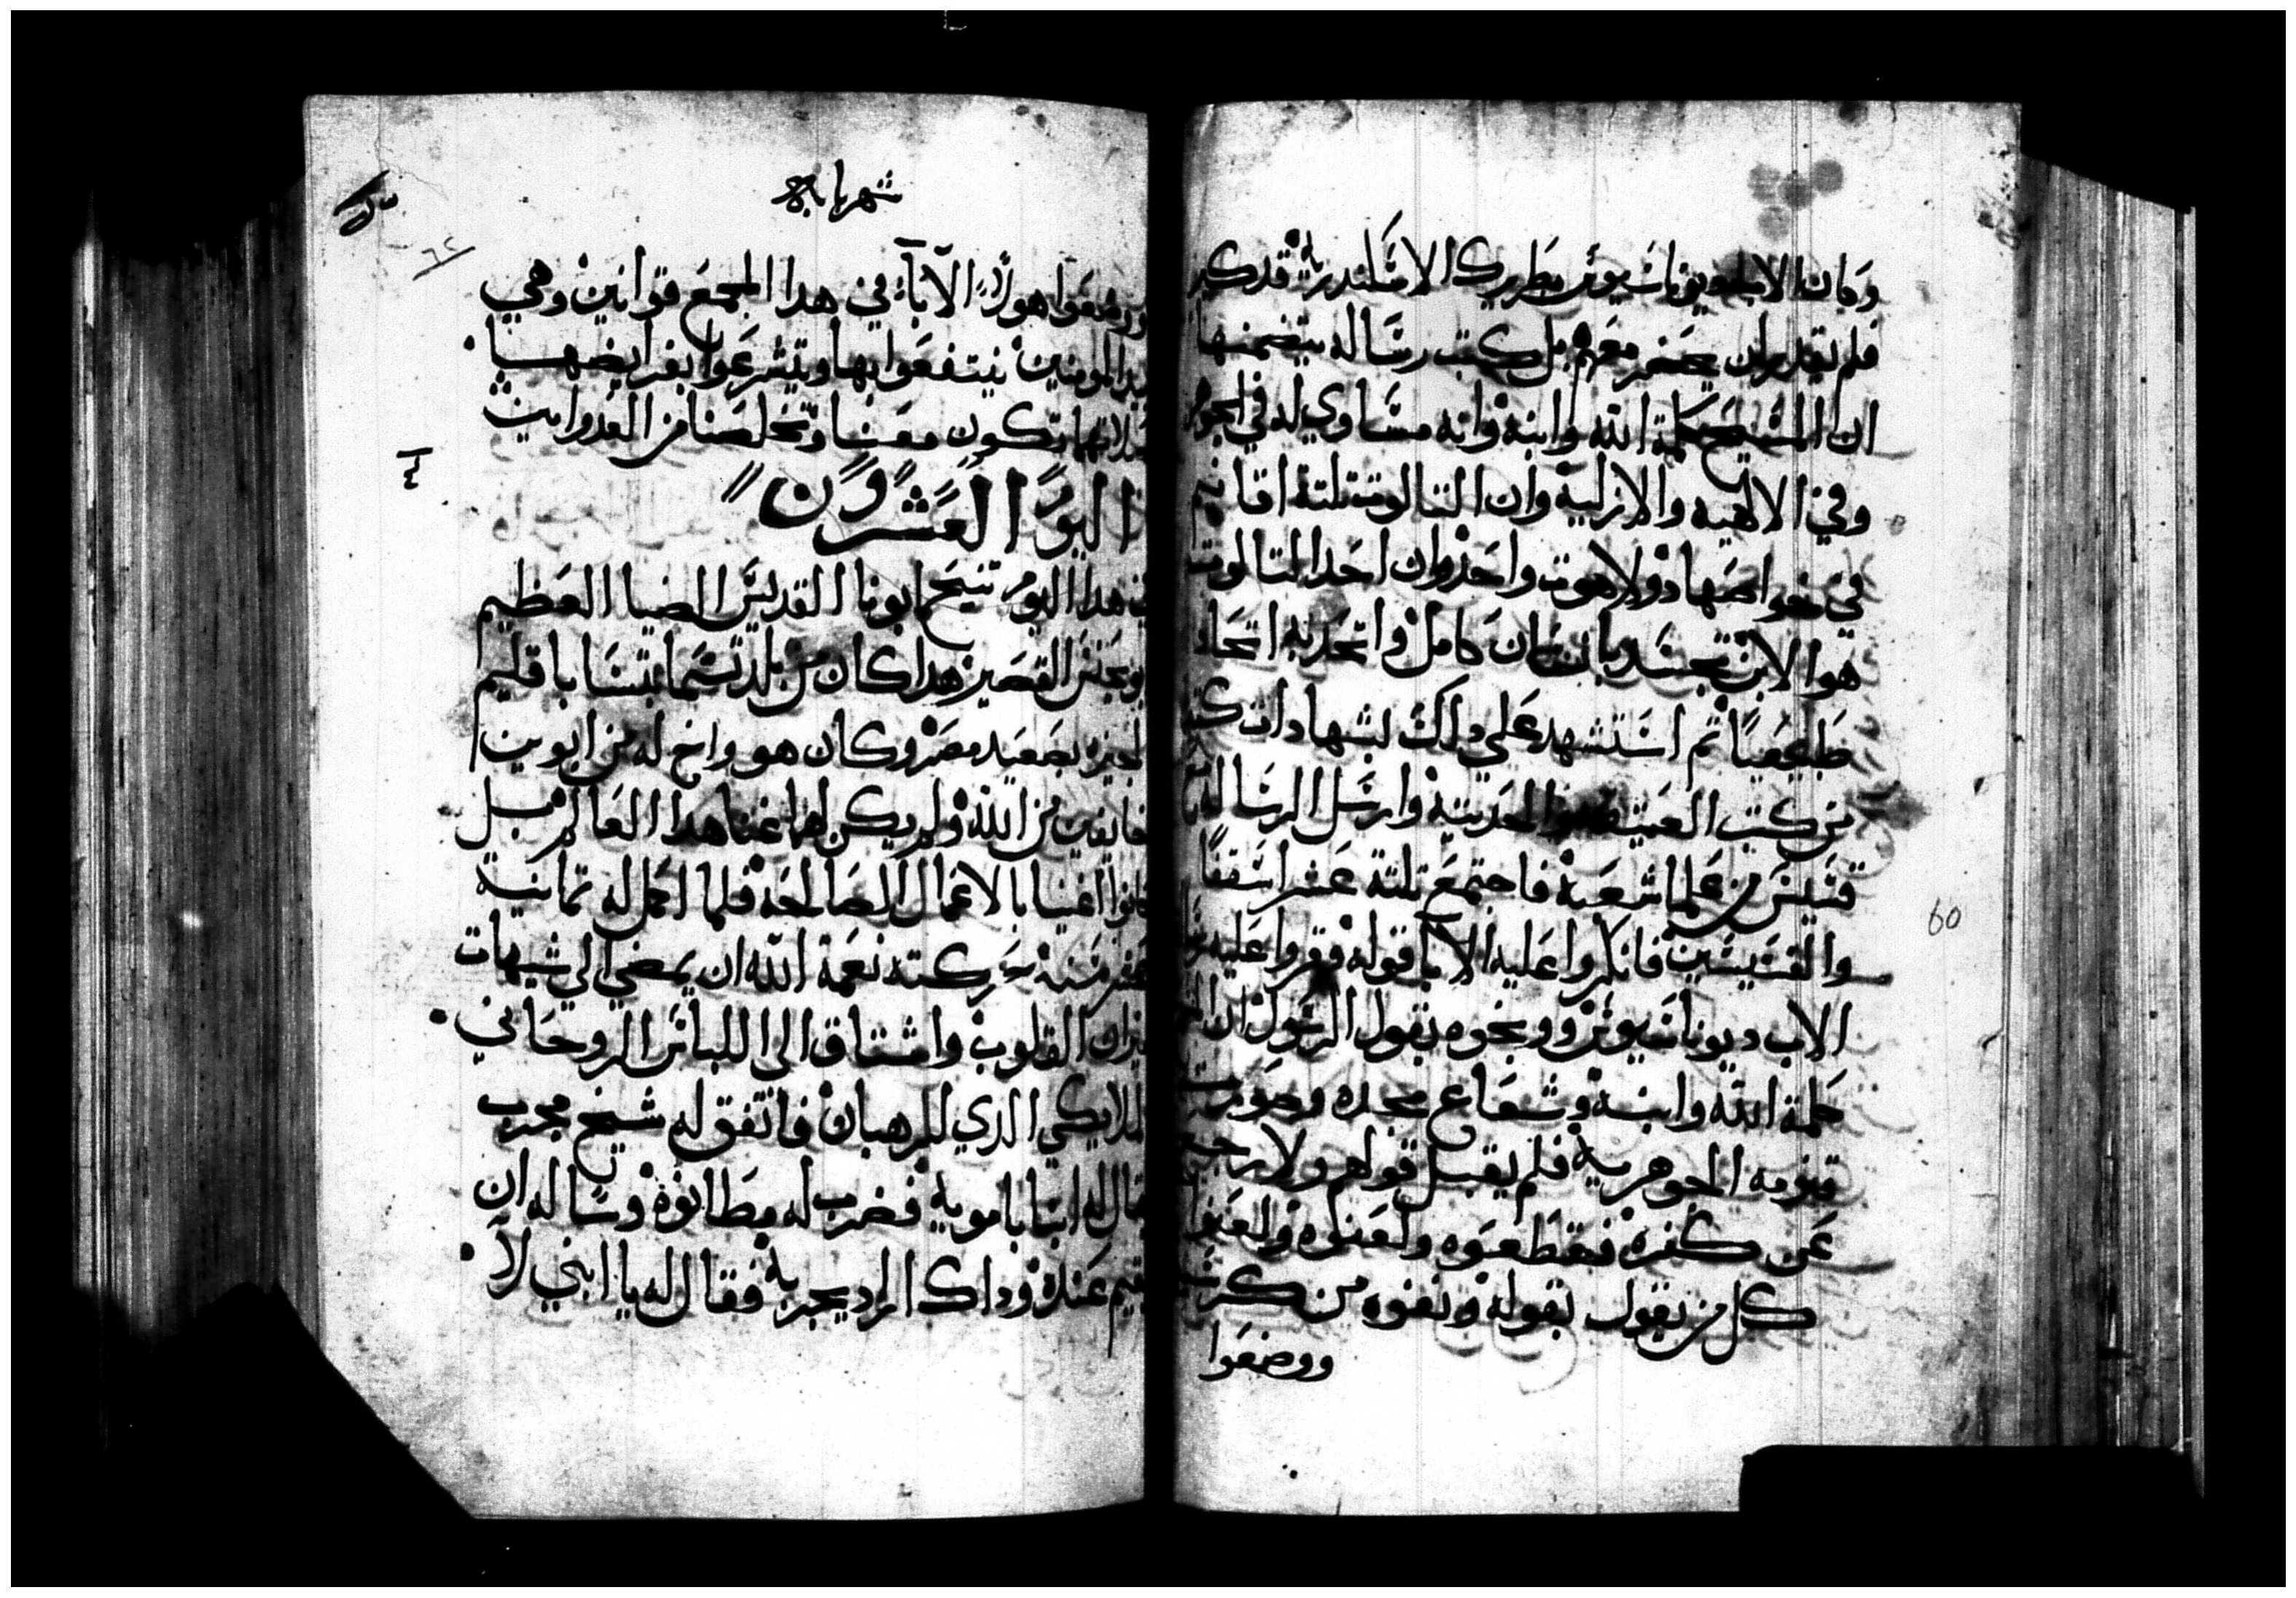 وكان الاب ديوناسيوس بطريرك الاسكندرية قد كبر
فلم يقدر ان يحضر معهم بل كتب رسالة يتضمنها
ان المسيح كلمة الله وابنه وانه مساوي له في الجوهر
وفي الالهيه والازلية وان التالوت تلتة اقانيم
في خواصها دو لاهوت واحد وان احد التالوت
هو الابن تجسد بانسان كامل واتحد به اتحاد
طبيعيا تم استشهد علي داك بشهادات كتيره
من كتب العتيقه والحديتة وارسل الرسالة
قسيس من علما شعبه فاجتمع تلتة عشر اسقفا
والقسيسين فانكروا عليه الابا قوله وقروا عليه
الاب ديوناسيوس ووبخوه بقول الرسول ان
كلمة الله وابنه وشعاع مجده وصورت
قنومه الجوهرية فلم يقبل قولهم ولا رجع
عن كفره فقطعوه ولعنوه ولعنوا
كل من يقول بقوله ونفوه من كرسيه
ووضعوا
60
شهر بابه
٦٢
ووضعوا هولاي الآباء في هدا المجمع قوانين وهي
بيد المومنين ينتفعوا بها ويتشرعوا بفرايضها
صلاتهما تكون معنا وتخلصنا من العدو امين
اليوم العشرون
في هدا اليوم تنيح ابونا القديس الضيا العظيم
ابو يحنس القصير هدا كان من بلد تسما بتسا باقليم
الجيزه بصعيد مصر وكان هو واخ له من ابوين
خايفين من الله ولم يكن لهما غنا هدا العالم بل
كانوا اغنيا بالاعمال الصالحة فلما اكمل له تمانية
عشر سنة حركته نعمة الله ان يمضي الي شيهات
ميزان القلوب واشتاق الى اللباس الروحاني
الملايكي الدي للرهبان فاتفق له شيخ مجرب
يقال له انبا بامويه فضرب له مطانوة وساله ان
يقيم عنده وداك اراد يجربه فقال له يا ابني لا